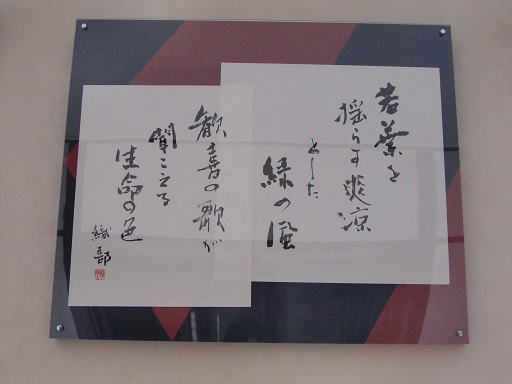 若葉を
揺らす爽涼
とした
緑の風
歓喜の歌が
聞こえる
生命の色
織部